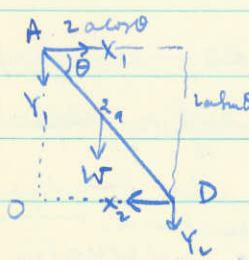 A 2acosθ
X₁
θ
Y₁
2a
2asinθ
W
O X₂ D
Y₂